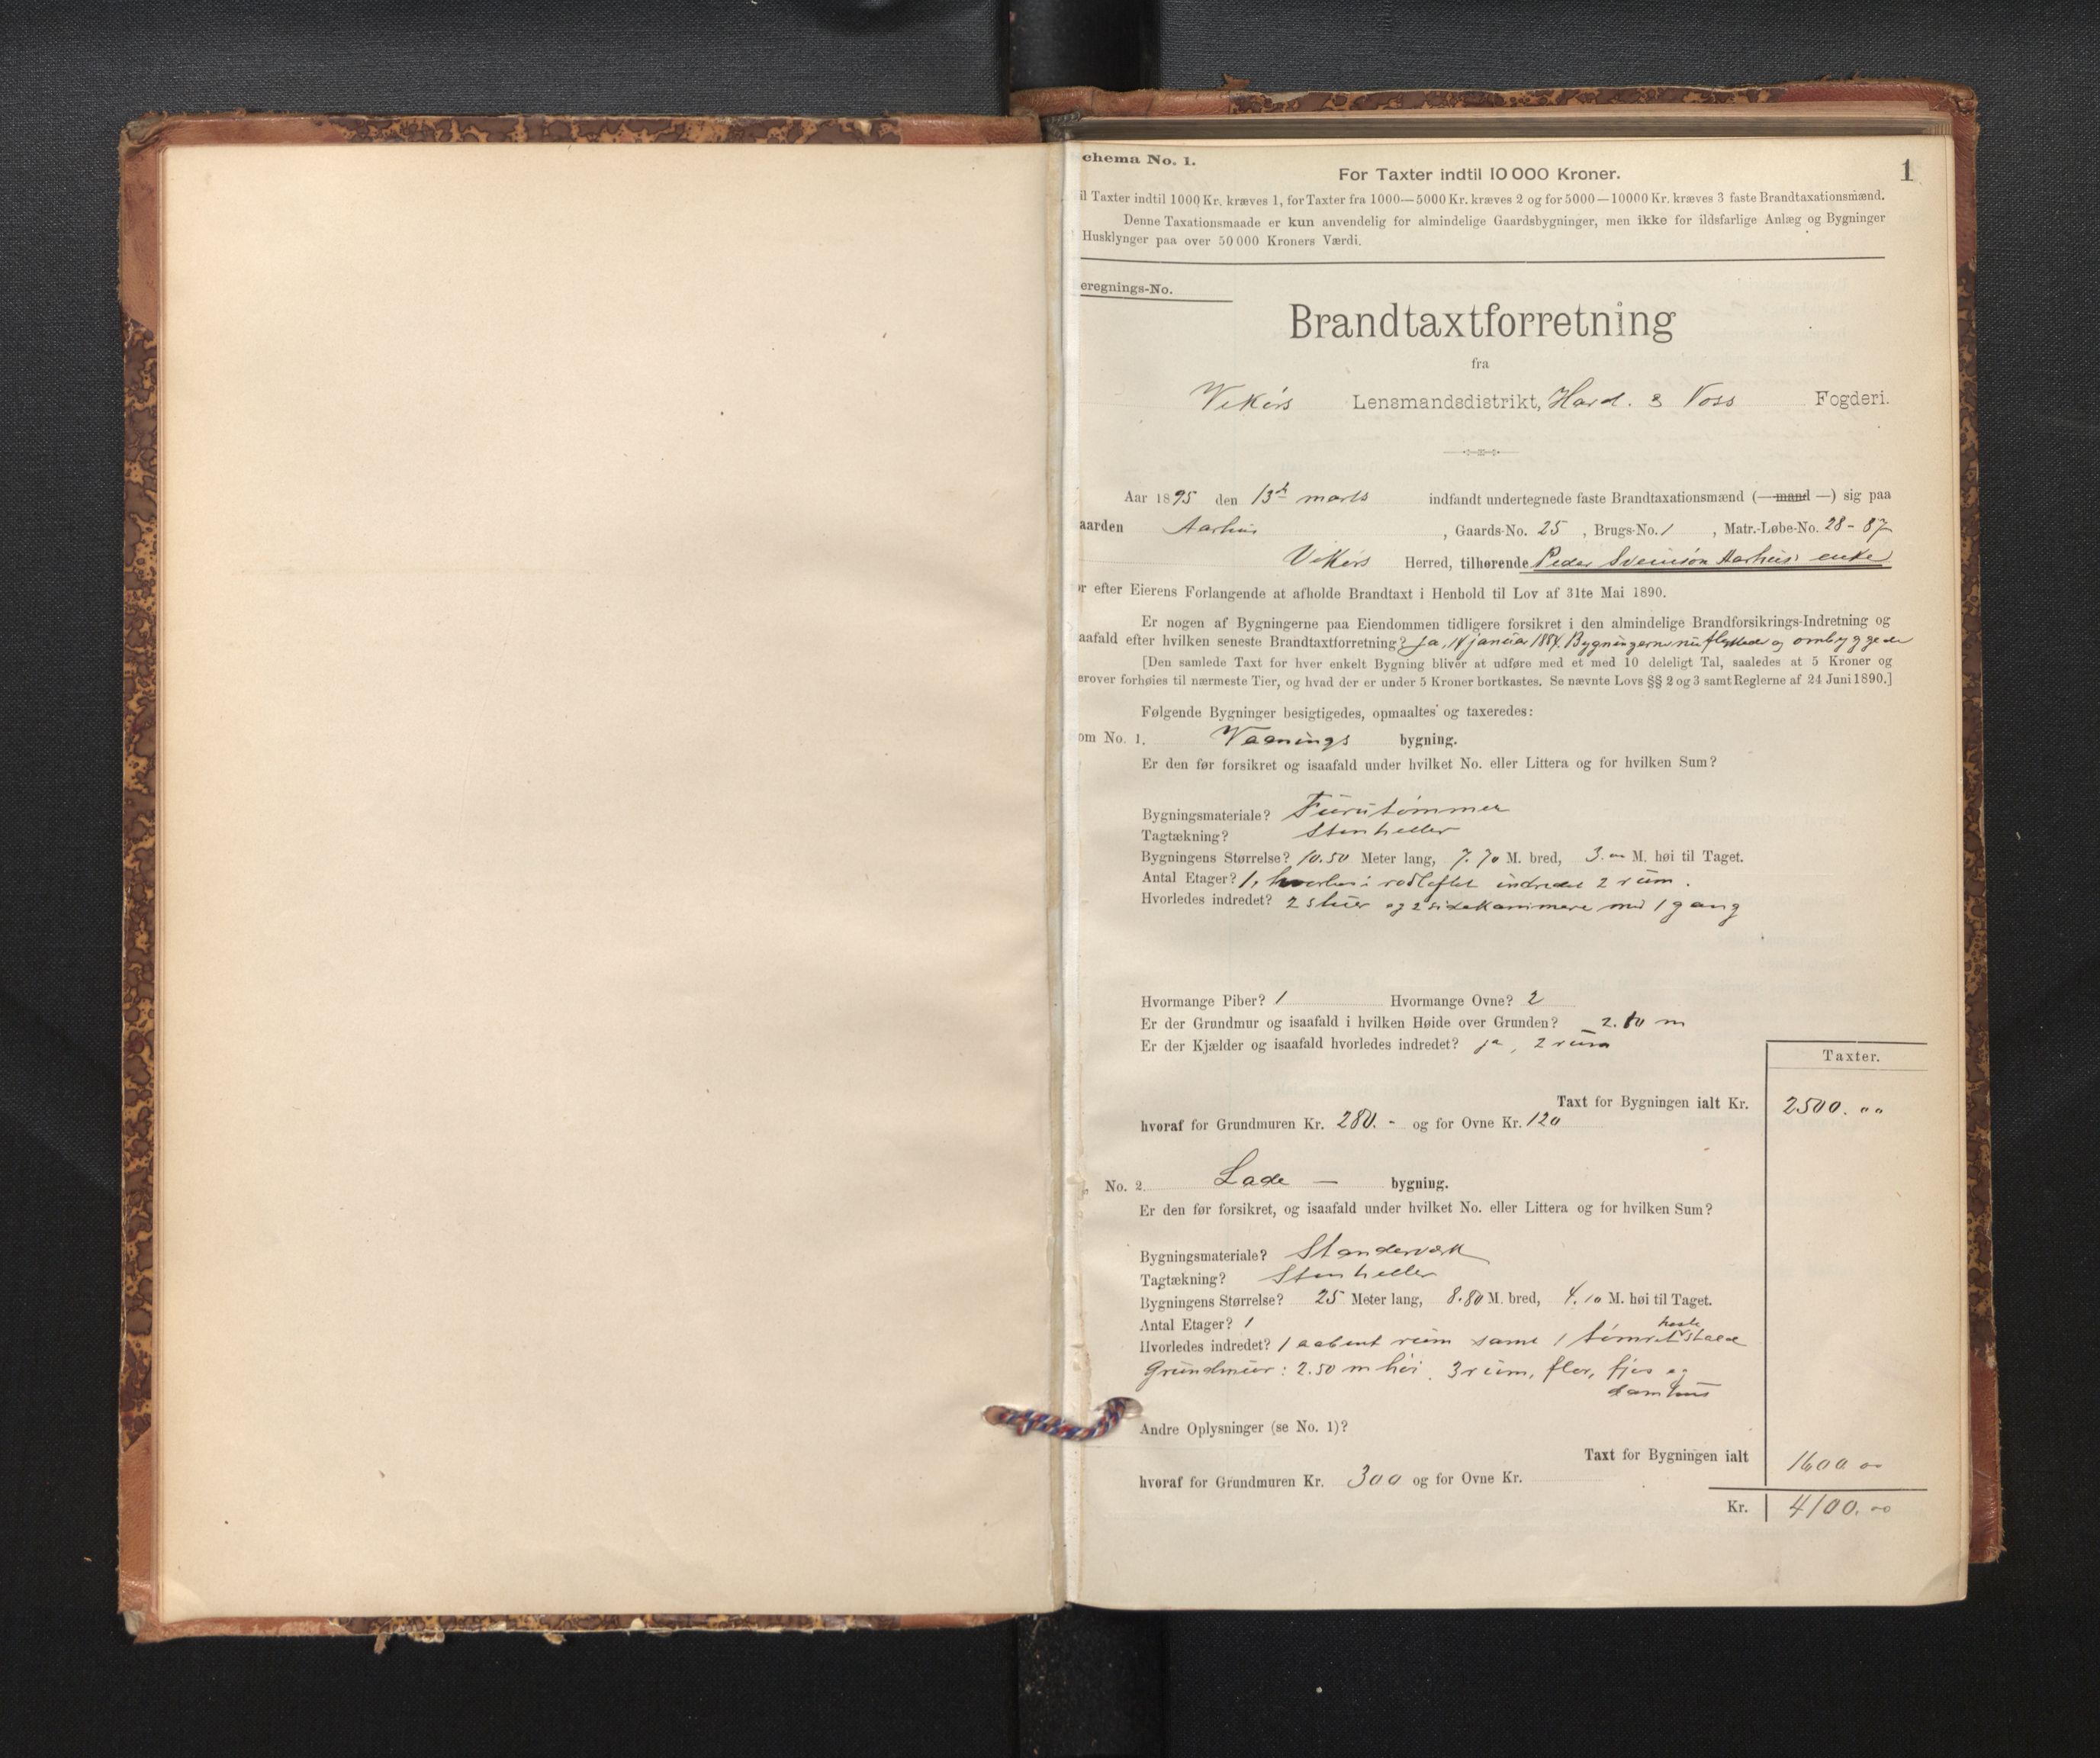 chema No. 1.
1
For Taxter indtil 10 000 Kroner.
il Taxter indtil 1000 Kr. kræves 1, for Taxter fra 1000—5000 Kr. kræves 2 og for 5000—10000 Kr. kræves 3 faste Brandtaxationsmænd.
Denne Taxationsmaade er kun anvendelig for almindelige Gaardsbygninger, men ikke for ildsfarlige Anlæg og Bygninger
Husklynger paa over 50 000 Kroners Værdi.
eregnings-No.
Brandtaxtforretning
fra
Vikørs Lensmandsdistrikt, Hard. & Voss Fogderi.
Aar 1895 den 13de marts indfandt undertegnede faste Brandtaxationsmænd (—mand —) sig paa
aarden Aarhus, Gaards-No. 25, Brugs-No. 1, Matr.-Løbe-No. 28 - 87
Vikørs Herred, tilhørende Peder Svensøn Aarhus' enke
r efter Eierens Forlangende at afholde Brandtaxt i Henhold til Lov af 31te Mai 1890.
Er nogen af Bygningerne paa Eiendommen tidligere forsikret i den almindelige Brandforsikrings-Indretning og
aafald efter hvilken seneste Brandtaxtforretning? Ja, 14 januar 1884. Bygningerne nu flyttede og ombyggede
[Den samlede Taxt for hver enkelt Bygning bliver at udføre med et med 10 deleligt Tal, saaledes at 5 Kroner og
erover forhøies til nærmeste Tier, og hvad der er under 5 Kroner bortkastes. Se nævnte Lovs §§ 2 og 3 samt Reglerne af 24 Juni 1890.]
Følgende Bygninger besigtigedes, opmaaltes og taxeredes:
om No. 1. Vaanings bygning.
Er den før forsikret og isaafald under hvilket No. eller Littera og for hvilken Sum?
Bygningsmateriale? Furutømmer
Tagtækning? Stenheller
Bygningens Størrelse? 10.50 Meter lang, 7.70 M. bred, 3.00 M. høi til Taget.
Antal Etager? 1, hvorhos i rødloftet indredet 2 rum.
Hvorledes indredet? 2 stuer og 2 sidekammere med 1 gang
Hvormange Piber? 1 Hvormange Ovne? 2
Er der Grundmur og isaafald i hvilken Høide over Grunden? 2.10 m
Er der Kjælder og isaafald hvorledes indredet? ja, 2 rum
Taxter.
Taxt for Bygningen ialt Kr. 2500. 00
hvoraf for Grundmuren Kr. 280. - og for Ovne Kr. 120
, No. 2. Lade — bygning.
Er den før forsikret, og isaafald under hvilket No. eller Littera og for hvilken Sum?
Bygningsmateriale? Standerværk
Tagtækning? Stenheller
Bygningens Størrelse? 25 Meter lang, 8.80 M. bred, 4.10 M. høi til Taget.
Antal Etager? 1
Hvorledes indredet? 1 aabent rum samt 1 tømret heste stald
Grundmur: 2.50 m høi. 3 rum, flor, fjos og
Andre Oplysninger (se No. 1)?
Taxt for Bygningen ialt 1600 00
hvoraf for Grundmuren Kr. 300 og for Ovne Kr.
Kr. 4100. 00